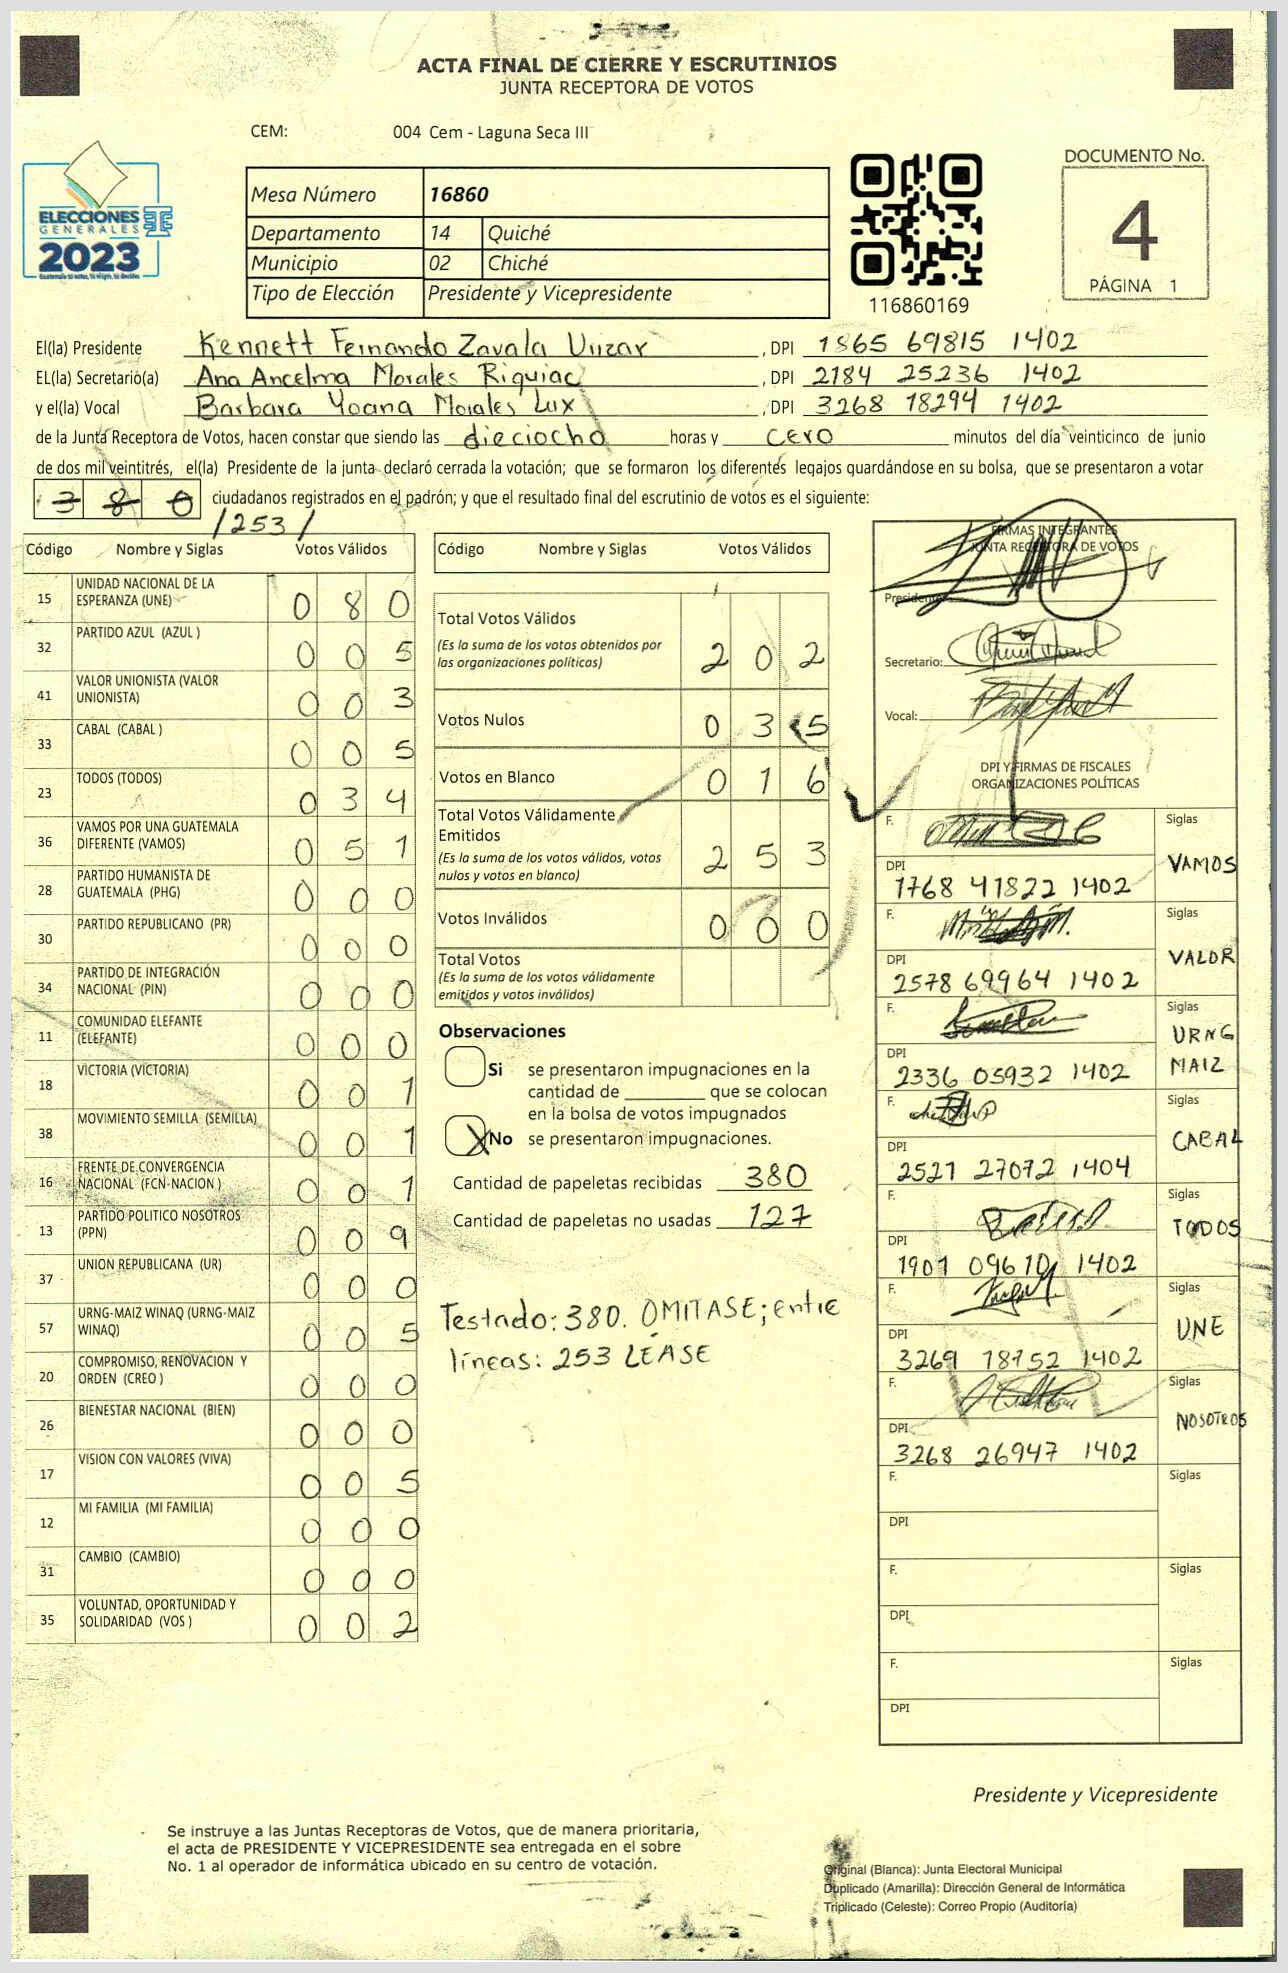 ACTA FINAL DE CIERRE Y ESCRUTINIOS
JUNTA RECEPTORA DE VOTOS
CEM: 004 Cem - Laguna Seca III
ELECCIONES
GENERALES
2023
Mesa Número 16860
Departamento 14 Quiché
Municipio 02 Chiché
Tipo de Elección Presidente y Vicepresidente
116860169
DOCUMENTO No.
4
PÁGINA 1
El(la) Presidente Kennett Fernando Zavala , DPI 1865 69815 1402
EL(la) Secretario(a) Ana Ancelma Morales Riquiac , DPI 2184 25236 1402
y el(la) Vocal Barbara Yoana Morales Lux , DPI 3268 18294 1402
de la Junta Receptora de Votos, hacen constar que siendo las dieciocho horas y cero minutos del día veinticinco de junio
de dos mil veintitrés, el(la) Presidente de la junta declaró cerrada la votación; que se formaron los diferentes legajos quardándose en su bolsa, que se presentaron a votar
380 ciudadanos registrados en el padrón; y que el resultado final del escrutinio de votos es el siguiente:
/253/
Código Nombre y Siglas Votos Válidos
15 UNIDAD NACIONAL DE LA ESPERANZA (UNE) 0 8 0
32 PARTIDO AZUL (AZUL ) 0 0 5
41 VALOR UNIONISTA (VALOR UNIONISTA) 0 0 3
33 CABAL (CABAL ) 0 0 5
23 TODOS (TODOS) 0 3 4
36 VAMOS POR UNA GUATEMALA DIFERENTE (VAMOS) 0 5 1
28 PARTIDO HUMANISTA DE GUATEMALA (PHG) 0 0 0
30 PARTIDO REPUBLICANO (PR) 0 0 0
34 PARTIDO DE INTEGRACIÓN NACIONAL (PIN) 0 0 0
11 COMUNIDAD ELEFANTE (ELEFANTE) 0 0 0
18 VICTORIA (VICTORIA) 0 0 1
38 MOVIMIENTO SEMILLA (SEMILLA) 0 0 1
16 FRENTE DE CONVERGENCIA NACIONAL (FCN-NACION ) 0 0 1
13 PARTIDO POLITICO NOSOTROS (PPN) 0 0 9
37 UNION REPUBLICANA (UR) 0 0 0
57 URNG-MAIZ WINAQ (URNG-MAIZ WINAQ) 0 0 5
20 COMPROMISO, RENOVACION Y ORDEN (CREO ) 0 0 0
26 BIENESTAR NACIONAL (BIEN) 0 0 0
17 VISION CON VALORES (VIVA) 0 0 5
12 MI FAMILIA (MI FAMILIA) 0 0 0
31 CAMBIO (CAMBIO) 0 0 0
35 VOLUNTAD, OPORTUNIDAD Y SOLIDARIDAD (VOS ) 0 0 2
Código Nombre y Siglas Votos Válidos
Total Votos Válidos 2 0 2
(Es la suma de los votos obtenidos por
las organizaciones políticas)
Votos Nulos 0 3 5
Votos en Blanco 0 1 6
Total Votos Válidamente
Emitidos 2 5 3
(Es la suma de los votos válidos, votos
nulos y votos en blanco)
Votos Inválidos 0 0 0
Total Votos
(Es la suma de los votos válidamente
emitidos y votos inválidos)
Observaciones
Si se presentaron impugnaciones en la
cantidad de ________ que se colocan
en la bolsa de votos impugnados
X No se presentaron impugnaciones.
Cantidad de papeletas recibidas 380
Cantidad de papeletas no usadas 127
Testado: 380. OMITASE; entre
líneas: 253 LEASE
FIRMAS INTEGRANTES
JUNTA RECEPTORA DE VOTOS
Presidente:
Secretario:
Vocal:
DPI Y FIRMAS DE FISCALES
ORGANIZACIONES POLÍTICAS
F. Siglas
VAMOS
DPI
1768 41822 1402
F. Siglas
VALOR
DPI
2578 69964 1402
F. Siglas
URNG
MAIZ
DPI
2336 05932 1402
F. Siglas
CABAL
DPI
2521 27072 1404
F. Siglas
TODOS
DPI
1901 09610 1402
F. Siglas
UNE
DPI
3269 18752 1402
F. Siglas
NOSOTROS
DPI
3268 26947 1402
F. Siglas
DPI
F. Siglas
DPI
F. Siglas
DPI
Presidente y Vicepresidente
Se instruye a las Juntas Receptoras de Votos, que de manera prioritaria,
el acta de PRESIDENTE Y VICEPRESIDENTE sea entregada en el sobre
No. 1 al operador de informática ubicado en su centro de votación.
Original (Blanca): Junta Electoral Municipal
Duplicado (Amarilla): Dirección General de Informática
Triplicado (Celeste): Correo Propio (Auditoría)